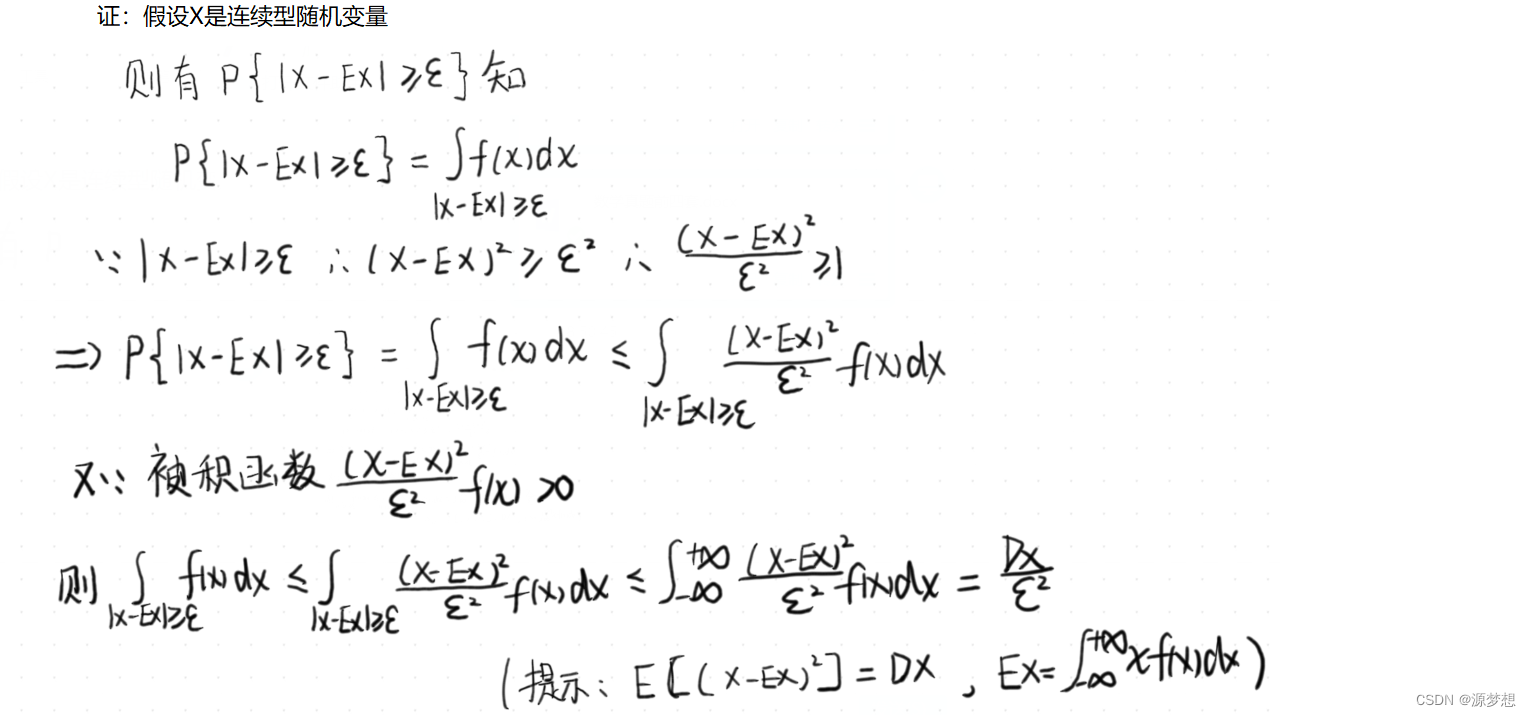 证：假设X是连续型随机变量
则有 P{|X-EX|≥ε}知
P{|X-EX|≥ε} = ∫_{|X-EX|≥ε} f(x)dx
∵|X-EX|≥ε ∴(X-EX)²≥ε² ∴ (X-EX)²/ε² ≥1
=> P{|X-EX|≥ε} = ∫_{|X-EX|≥ε} f(x)dx ≤ ∫_{|X-EX|≥ε} (X-EX)²/ε² f(x)dx
又∵ 被积函数 (X-EX)²/ε² f(x) >0
则 ∫_{|X-EX|≥ε} f(x)dx ≤ ∫_{|X-EX|≥ε} (X-EX)²/ε² f(x)dx ≤ ∫_{-∞}^{+∞} (X-EX)²/ε² f(x)dx = DX/ε²
(提示：E[(X-EX)²]=DX , EX=∫_{-∞}^{+∞} xf(x)dx)
CSDN @源梦想